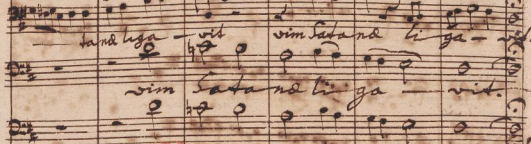 tanæ liga - vit vim Satanæ li - ga - vit
vim Satanæ li - ga - vit.